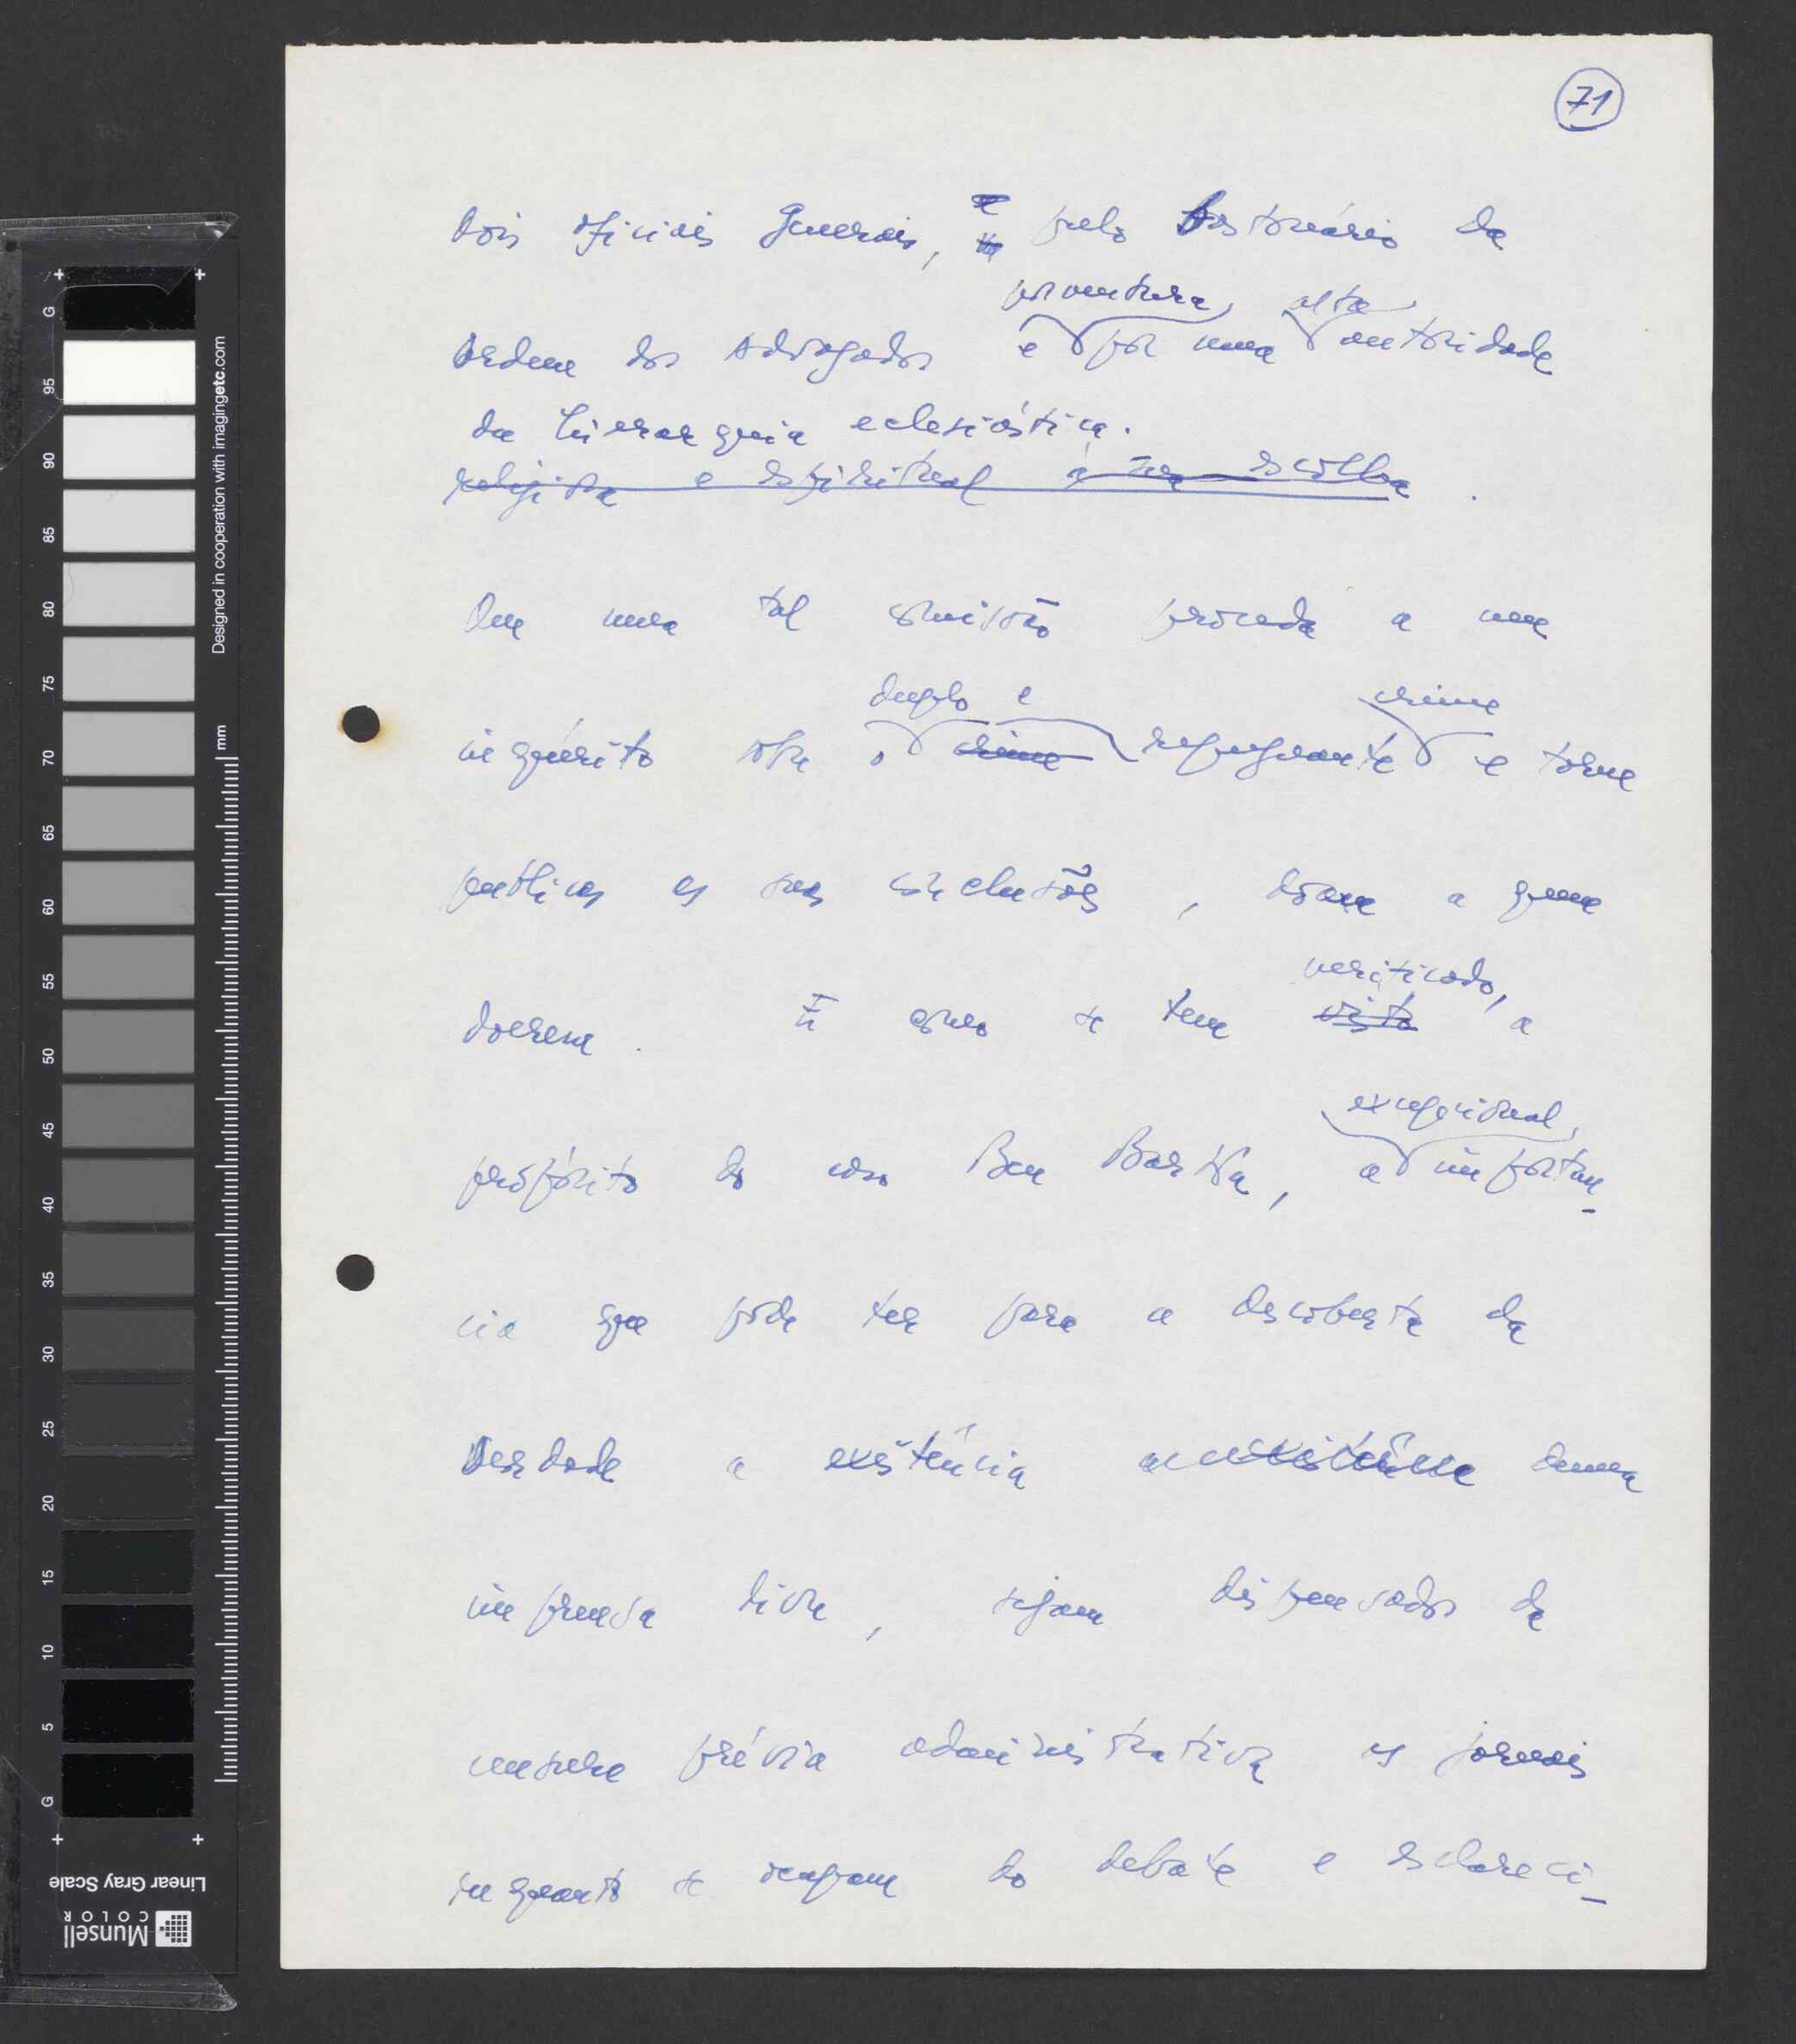 71
dois oficiais Generais, e pelo Bastonário da
porventura, alta
Ordem dos Advogados e por uma autoridade
da hierarquia eclesiástica.
religiosa e espiritual à sua escolha.
Que uma tal comissão proceda a um
duplo e crime
inquérito sobre o crime repugnante e torne
públicas as suas conclusões, doam a quem
doerem. E como se tem visto a
verificado,
excepcional,
propósito do caso Ben Barka, a importân-
cia que pode ter para a descoberta da
Verdade a existência duma
imprensa livre, sejam dispensados da
censura prévia administrativa os jornais
enquanto se ocupam do debate e esclareci-
Designed in cooperation with imagingetc.com
mm
G 95 90 85 80 75 70 65 60 55 50 45 40 35 30 25 20 15 10 5 G
Linear Gray Scale
Munsell
COLOR